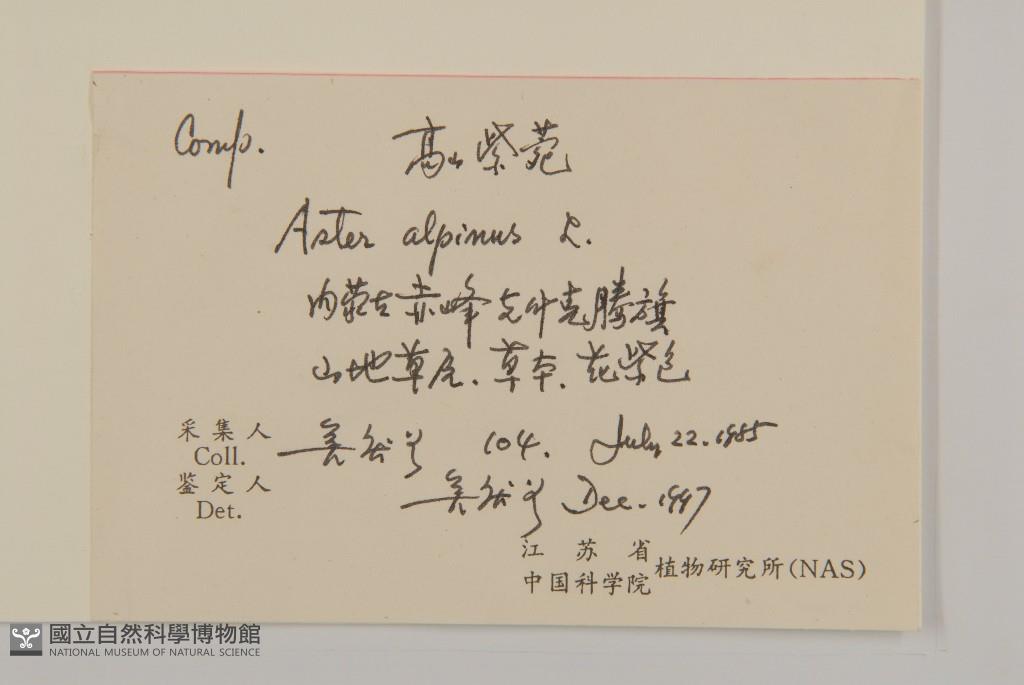 Comp. 高山紫菀
Aster alpinus L.
内蒙古赤峰克什克腾旗
山地草原、草本、花紫色
采集人
Coll. 104. July 22. 1985
鉴定人
Det. Dec. 1997
江苏省
中国科学院 植物研究所(NAS)
國立自然科學博物館
NATIONAL MUSEUM OF NATURAL SCIENCE